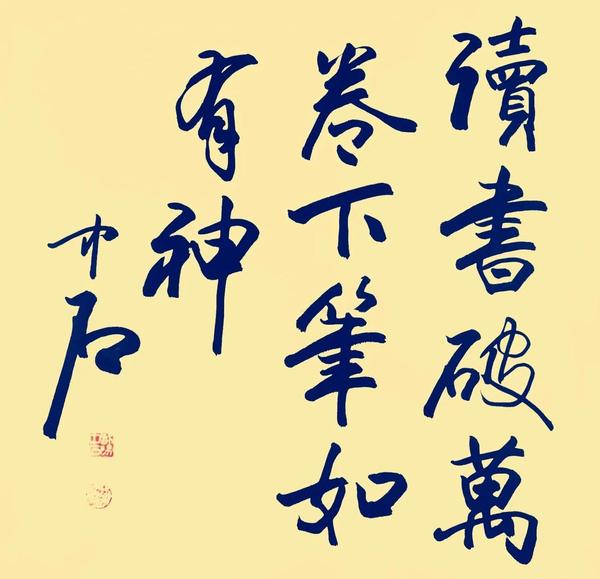 讀書破萬
卷下筆如
有神
中石